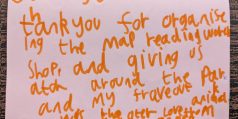 thankyou for organise
ing the map reading work
shop, and giving us
around the Park
and my fraveout animal
the otter